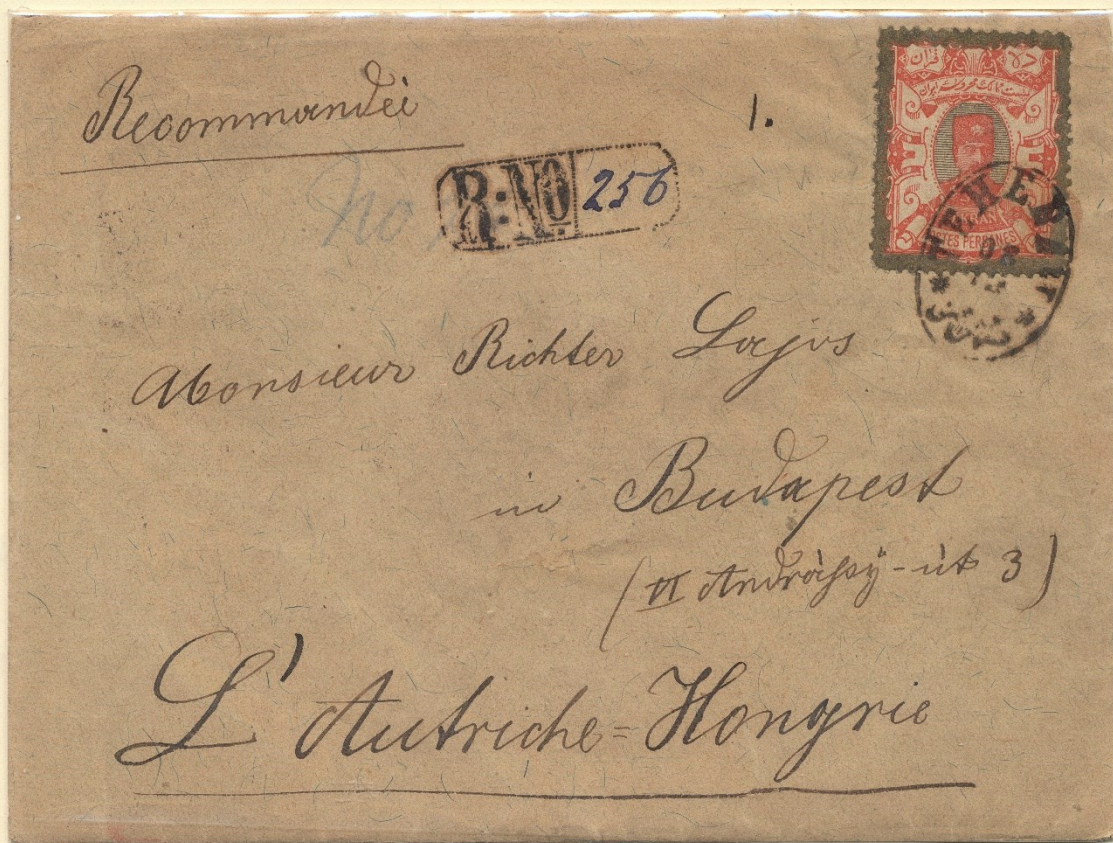 Recommandée
1.
R:No 256
No
قران
POSTES PERSANES
TEHERAN
Monsieur Richter Lajos
in Budapest
(VI Andrássÿ-út 3)
L'Autriche=Hongrie